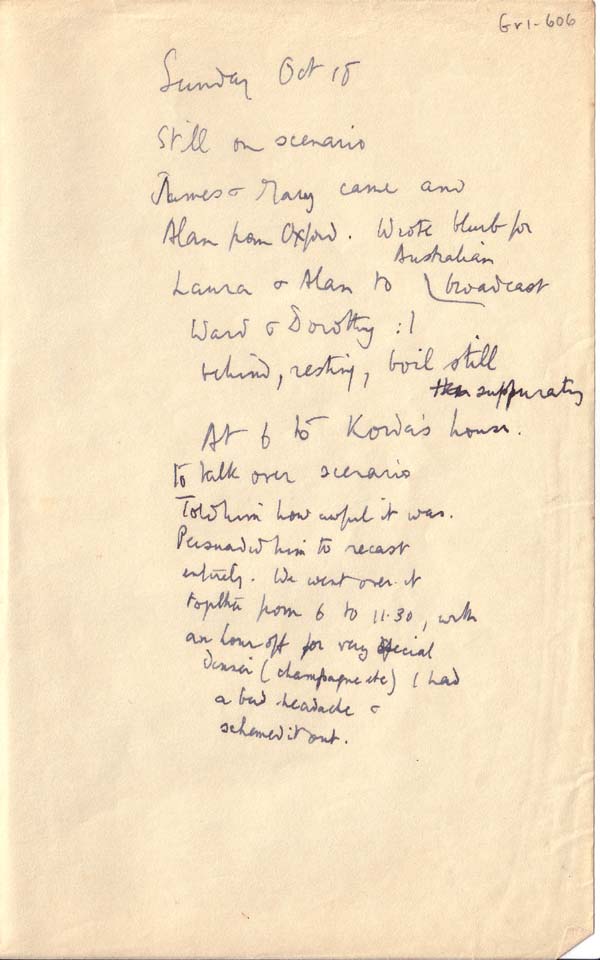 Gr1-606
Sunday Oct 18
Still on scenario
James & Mary came and
Alan from Oxford. Wrote blurb for
Australian
Laura & Alan to broadcast
Ward & Dorothy : I
behind, resting, boil still
suppurating
At 6 to Korda's house.
to talk over scenario
Told him how awful it was.
Persuaded him to recast
entirely. We went over it
together from 6 to 11.30, with
an hour off for very special
dinner (champagne etc) I had
a bad headache &
schemed it out.